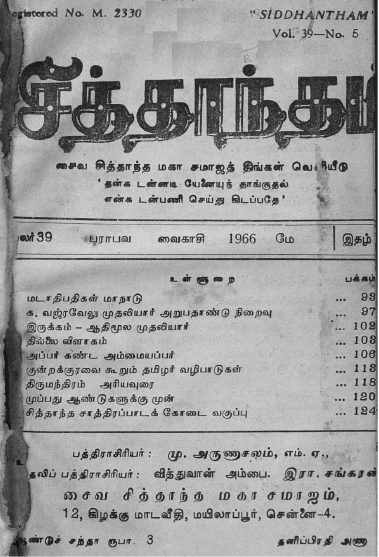 Registered No. M. 2330 "SIDDHANTHAM"
Vol. 39—No. 5
சித்தாந்தம்
சைவ சித்தாந்த மகா சமாஜத் திங்கள் வெளியீடு
'தன்க டன்னடி யேனையுந் தாங்குதல்
என்க டன்பணி செய்து கிடப்பதே'
மலர் 39 பராபவ வைகாசி 1966 மே இதழ்
உள்ளுறை பக்கம்
மடாதிபதிகள் மாநாடு ... 93
க. வஜ்ரவேலு முதலியார் அறுபதாண்டு நிறைவு ... 97
இருக்கம் – ஆதிமூல முதலியார் ... 102
தில்லை விளாகம் ... 103
அப்பர் கண்ட அம்மையப்பர் ... 106
குன்றக்குரவை கூறும் தமிழர் வழிபாடுகள் ... 113
திருமந்திரம் அரியவுரை ... 118
முப்பது ஆண்டுகளுக்கு முன் ... 120
சித்தாந்த சாத்திரப்பாடக் கோடை வகுப்பு ... 124
பத்திராசிரியர் : மு. அருணாசலம், எம். ஏ.,
உதவிப் பத்திராசிரியர் : வித்துவான் அம்பை. இரா. சங்கரன்
சைவ சித்தாந்த மகா சமாஜம்,
12, கிழக்கு மாடவீதி, மயிலாப்பூர், சென்னை-4.
ஆண்டுச் சந்தா ரூபா. 3 தனிப்பிரதி அணா